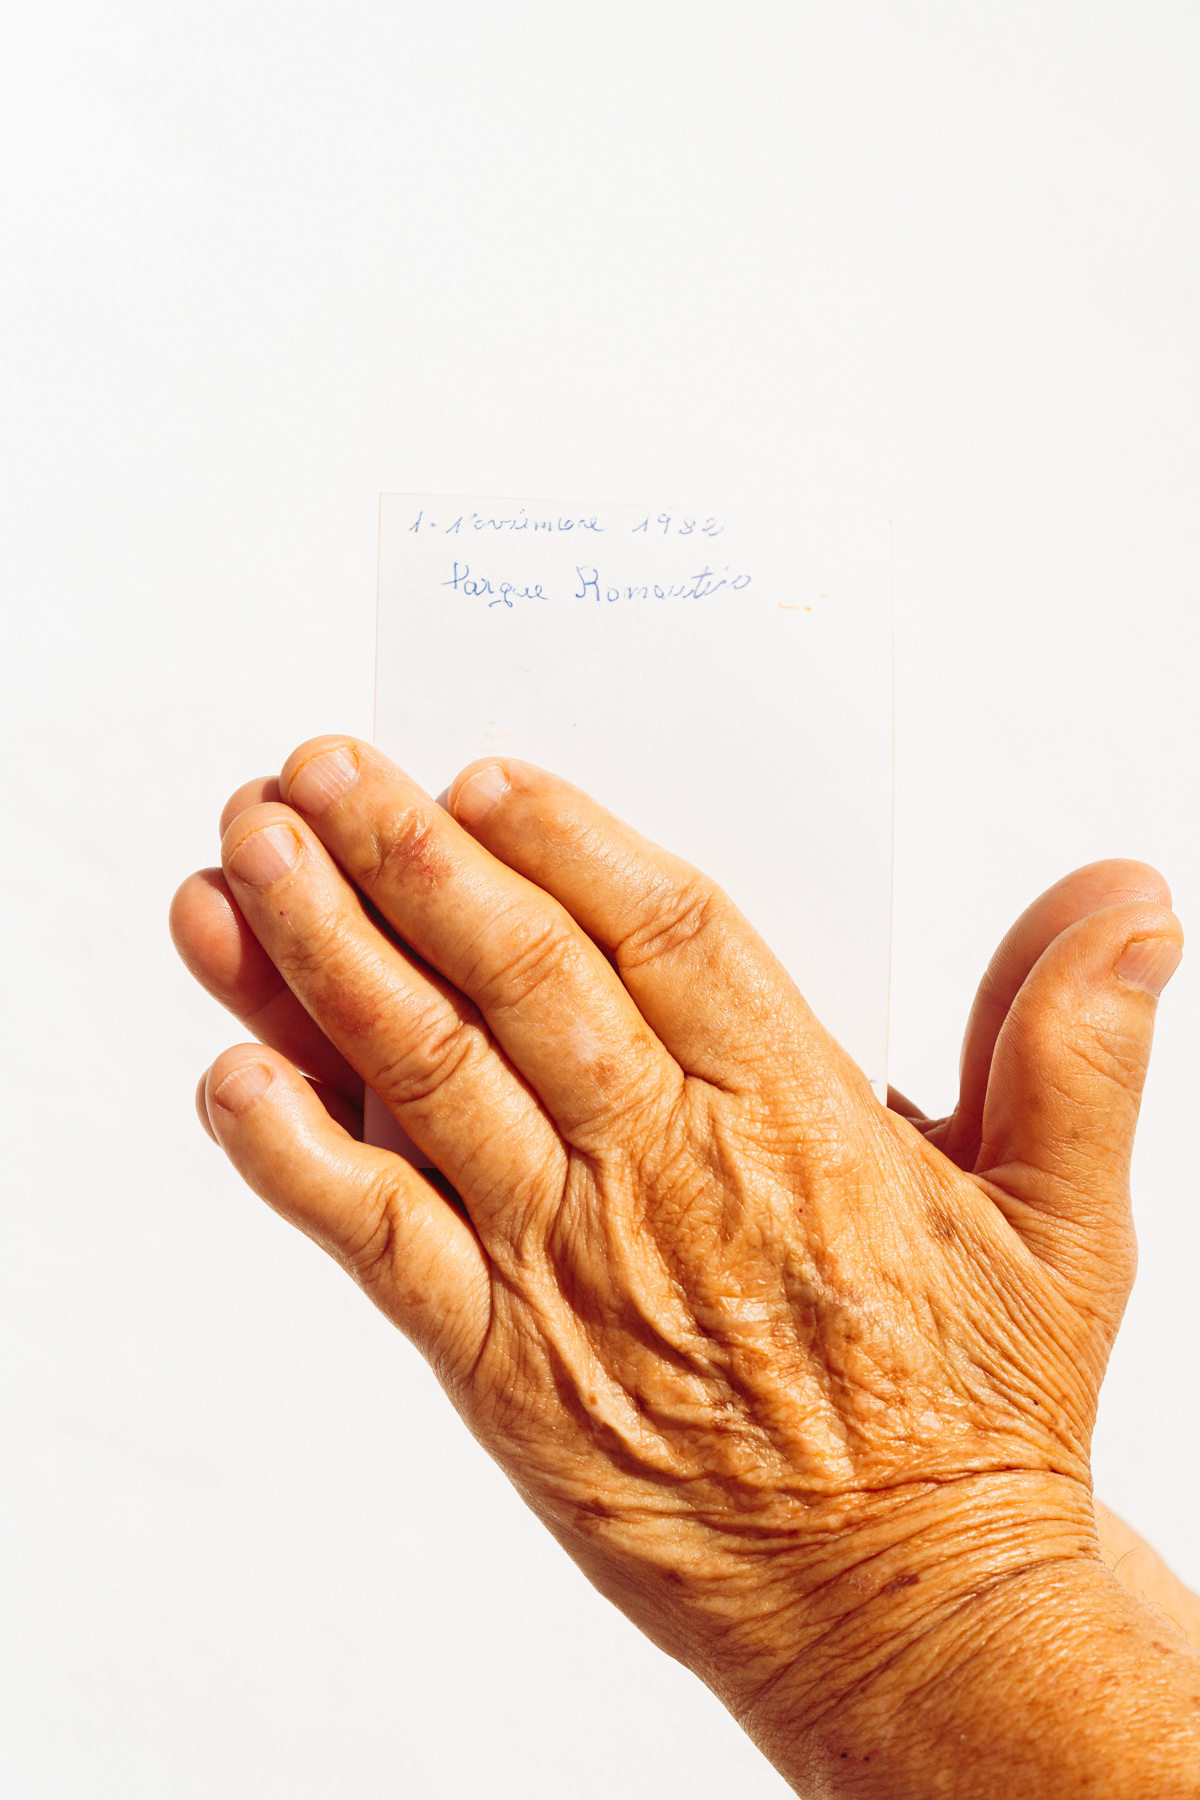 1. Noviembre 1982
Parque Romantico